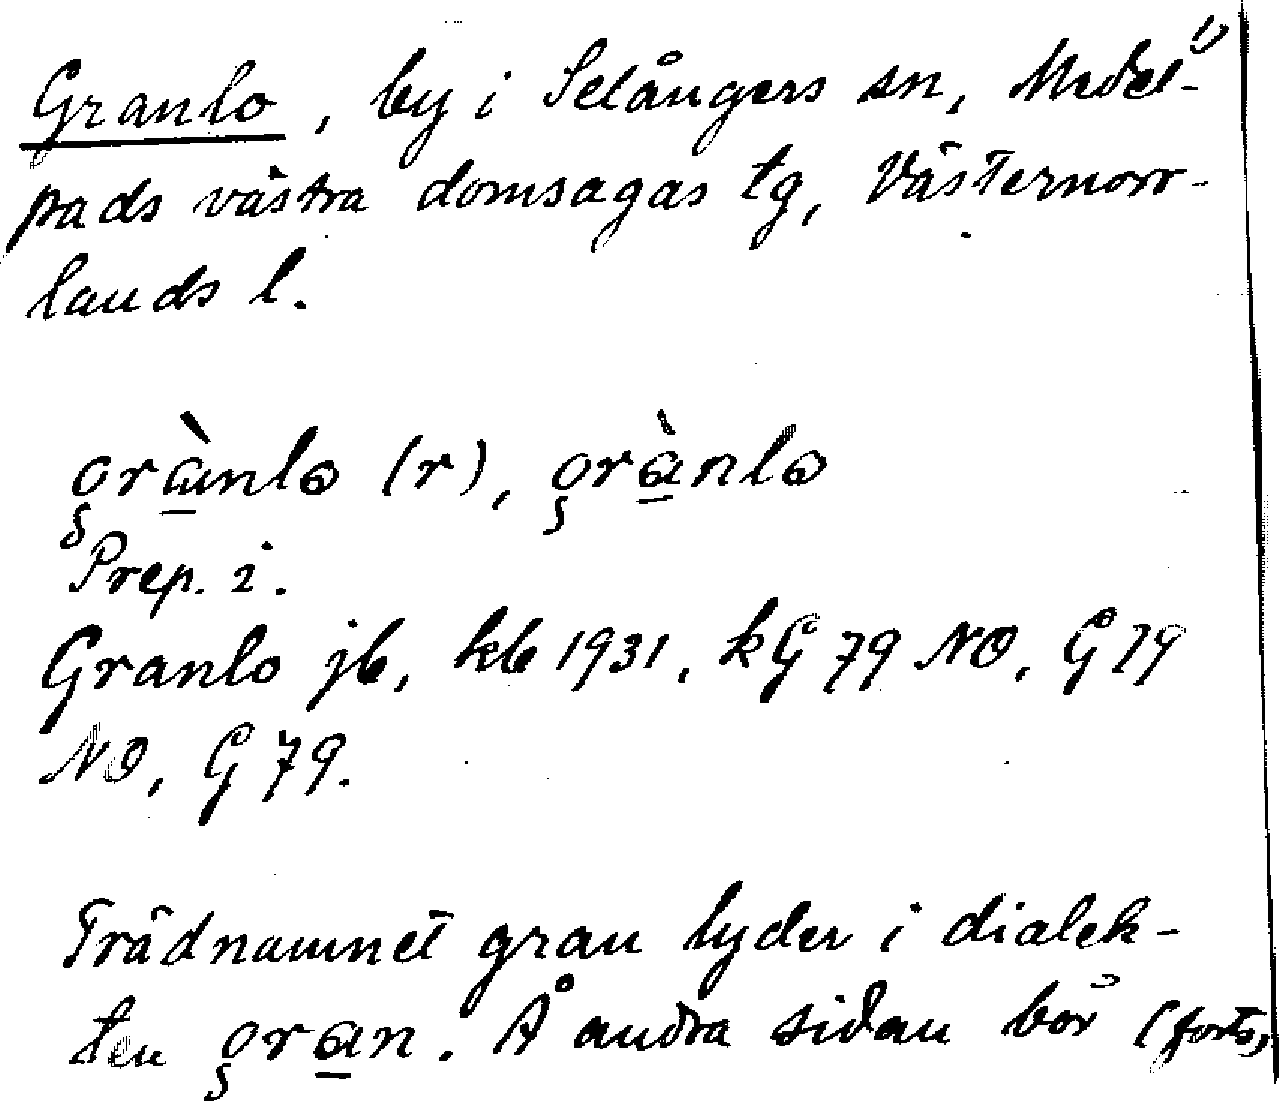 Granlo, by i Selångers sn, Medel- 1)
pads västra domsagas tg, Västernorr-
lands l.
grànlo (r), grànlo
Prep. i.
Granlo jb, kb 1931, kG 79 NO, G 79
NO, G 79.
Trädnamnet gran lyder i dialek-
ten gran. Å andra sidan bör (forts,